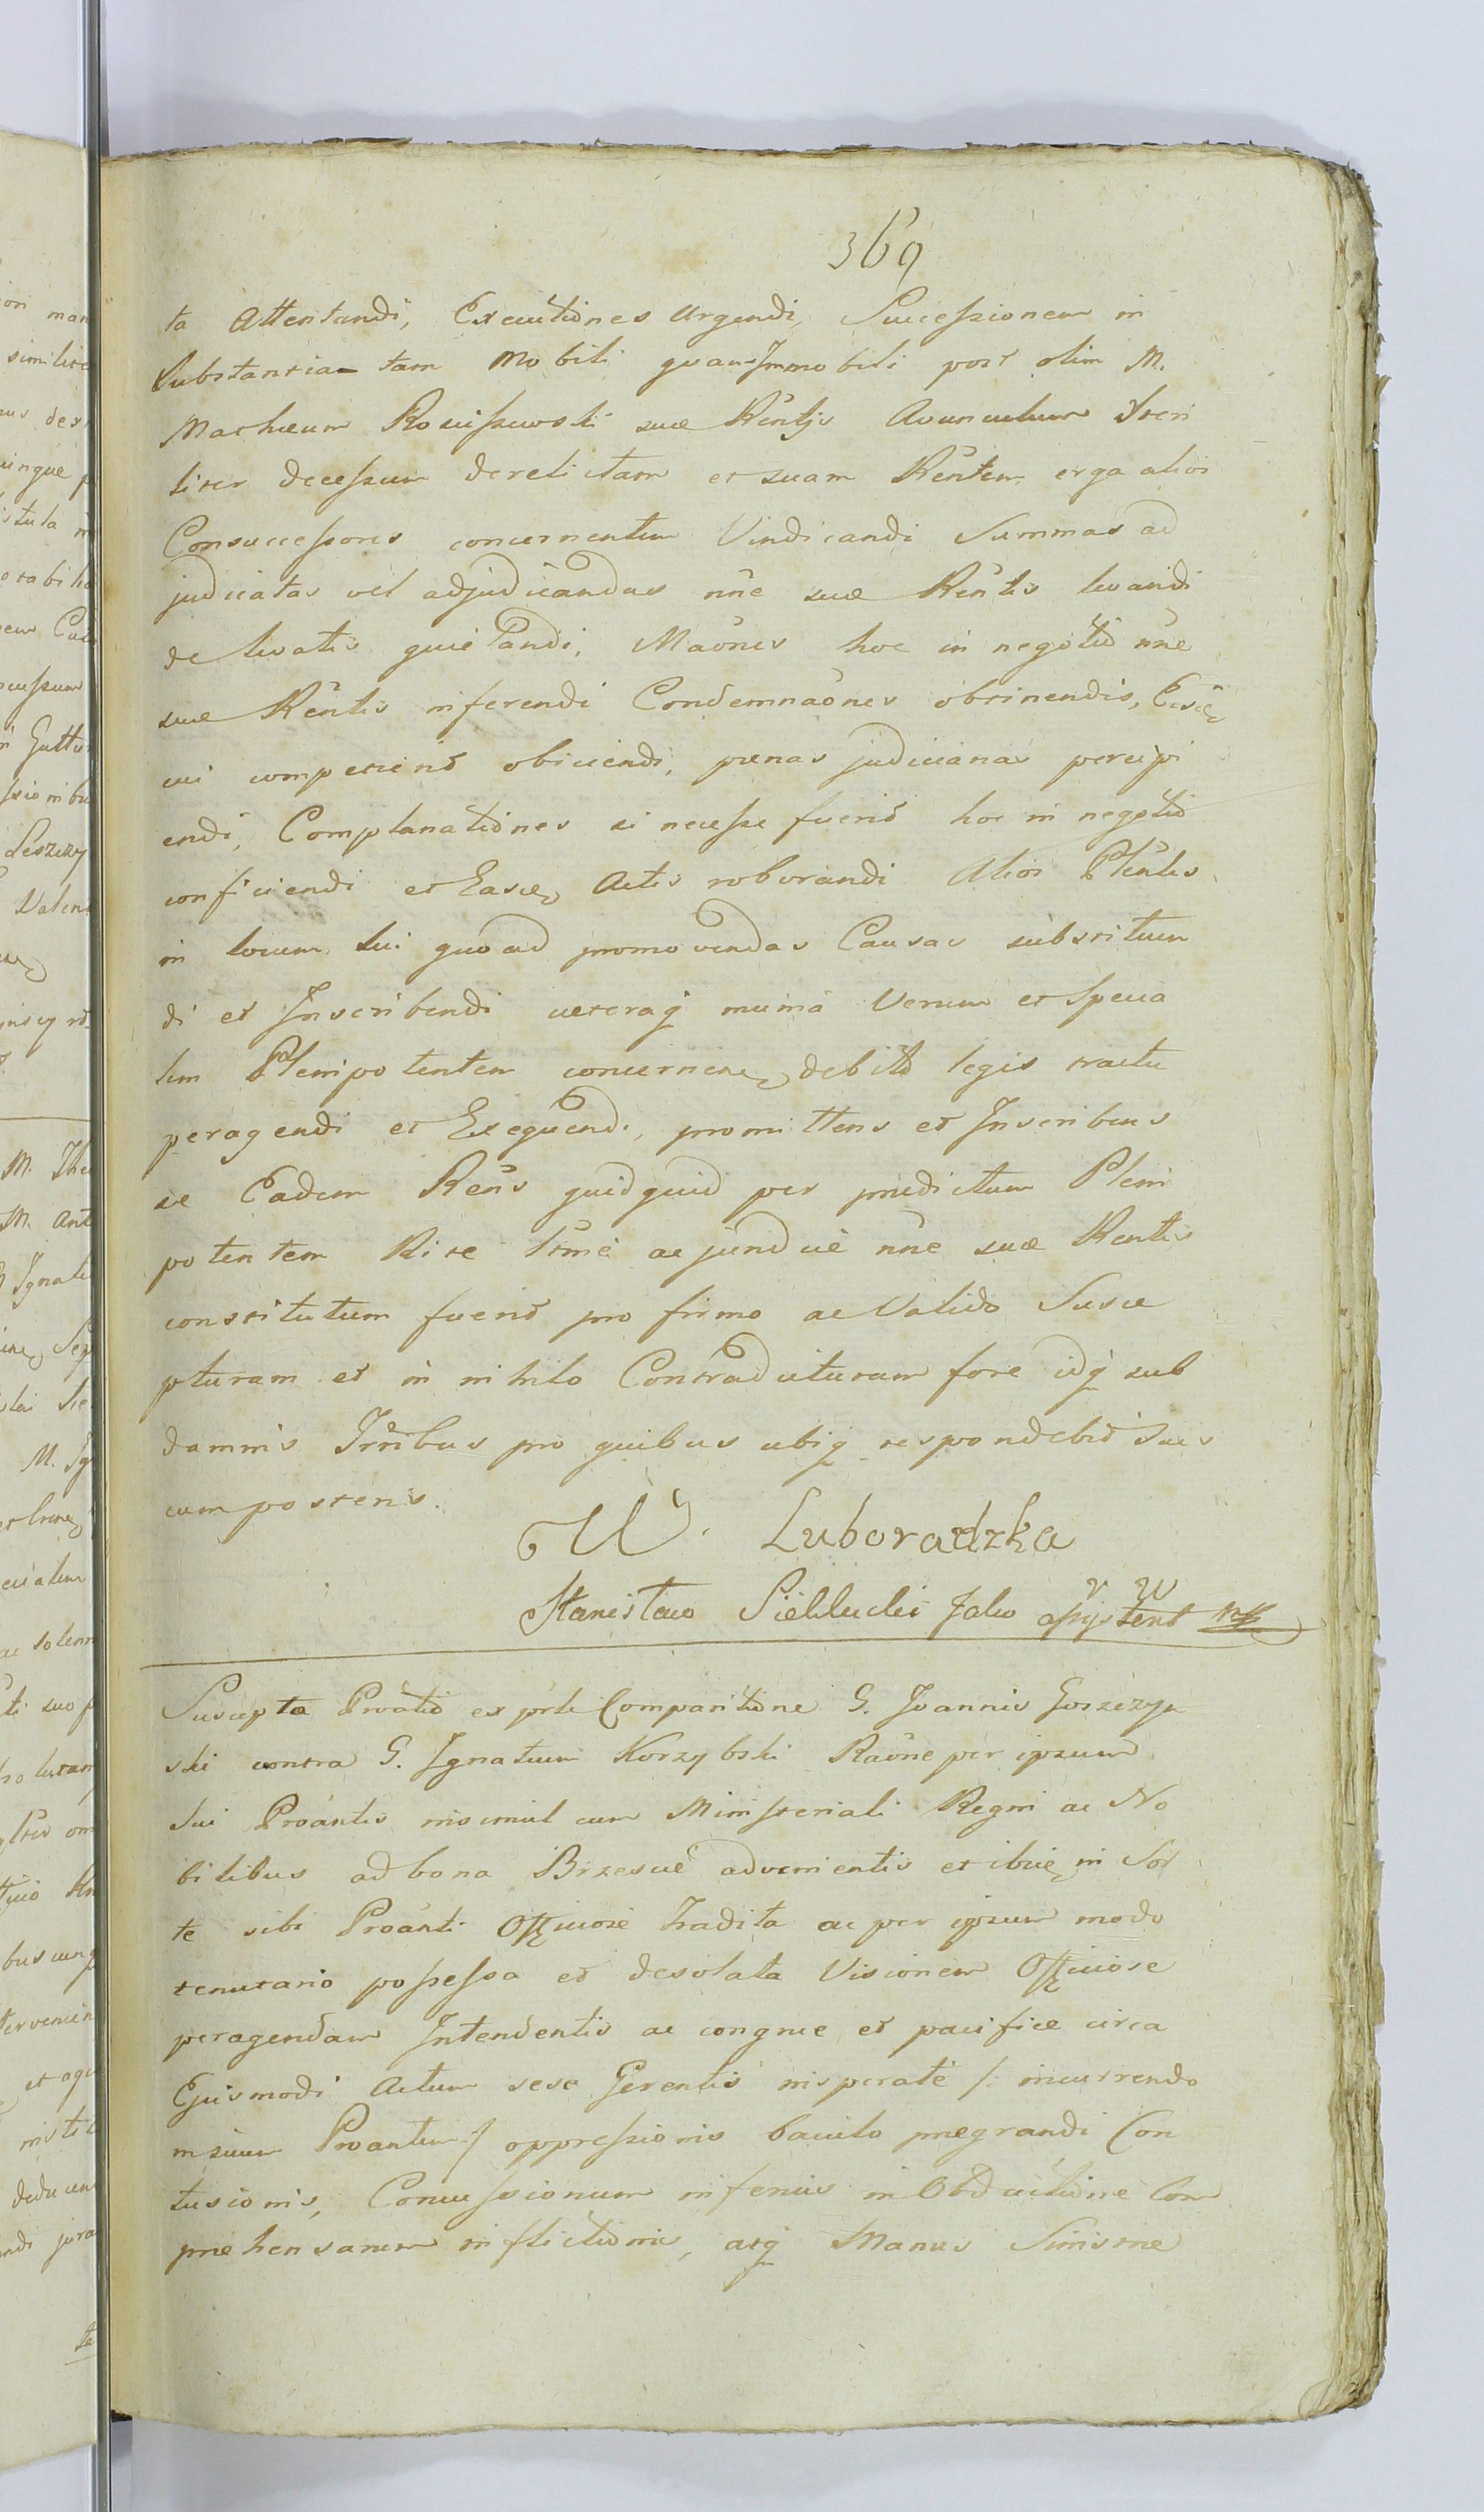 369
ta Attentandi, Executiones Urgendi, Successionem in
Substantia tam Mobili quam Immobili post olim M.
Mathæum Rosciszewski suæ Rentis Avunculum Steri
liter decessum derelictam et suam Rentem erga alios
Consuccessores concernentem Vindicandi Summas ad
judicatas vel adjudicandas nne suæ Rentis levandi
de levatis quietandi, Maones hoc in negotio nne
suæ Rentis inferendi Condemnaones obtinendis,
cui competierit obiiciendi, pœnas judiciarias percipi
endi, Complanationes si necesse fuerit hoc in negotio
conficiendi et Easq Actis roborandi Alios Plentes
in locum sui quoad promovendas Causas substituen
di et Inscribendi ceteraq munia Verum et Specia
lem Plenipotentem concernen, debito legis tractu
peragendi et Exequendi, promittens et Inscribens
se Eadem Rens quidquid per prædictum Pleni
potentem Rite ltme ac juridice nne suæ Rentis
constitutum fuerit pro firmo ac Valido Susce
pturam et in nihilo Contradicturam fore idq sub
damnis Trribus pro quibus ubiq respondebit Suis
cum posteris.
W. Luboradzka
Stanisław Sieklucki Jako assystent
Suscepta Proatio ex prte Comparitione G. Joannis Gorzezyn
ski contra G. Ignatium Korzybski Raone per ipsum
Sui Proantis insimul cum Ministeriali Regni ac No
bilibus ad bona Brzescie advenientis et ibiq in Sor
te sibi Proanti Officiose Tradita ac per ipsum modo
tenutario possessa et desolata Visionem Officiose
peragendam Intendentis ac congrue et pacifice circa
Ejusmodi Actum sese Gerentis insperate /: incurrendo
in suum Proantem :/ oppressionis baculo prægrandi Con
tusionis, Concussionum inferius in Obductione Com
prehensarum inflictionis, atq Manus Sinistræ